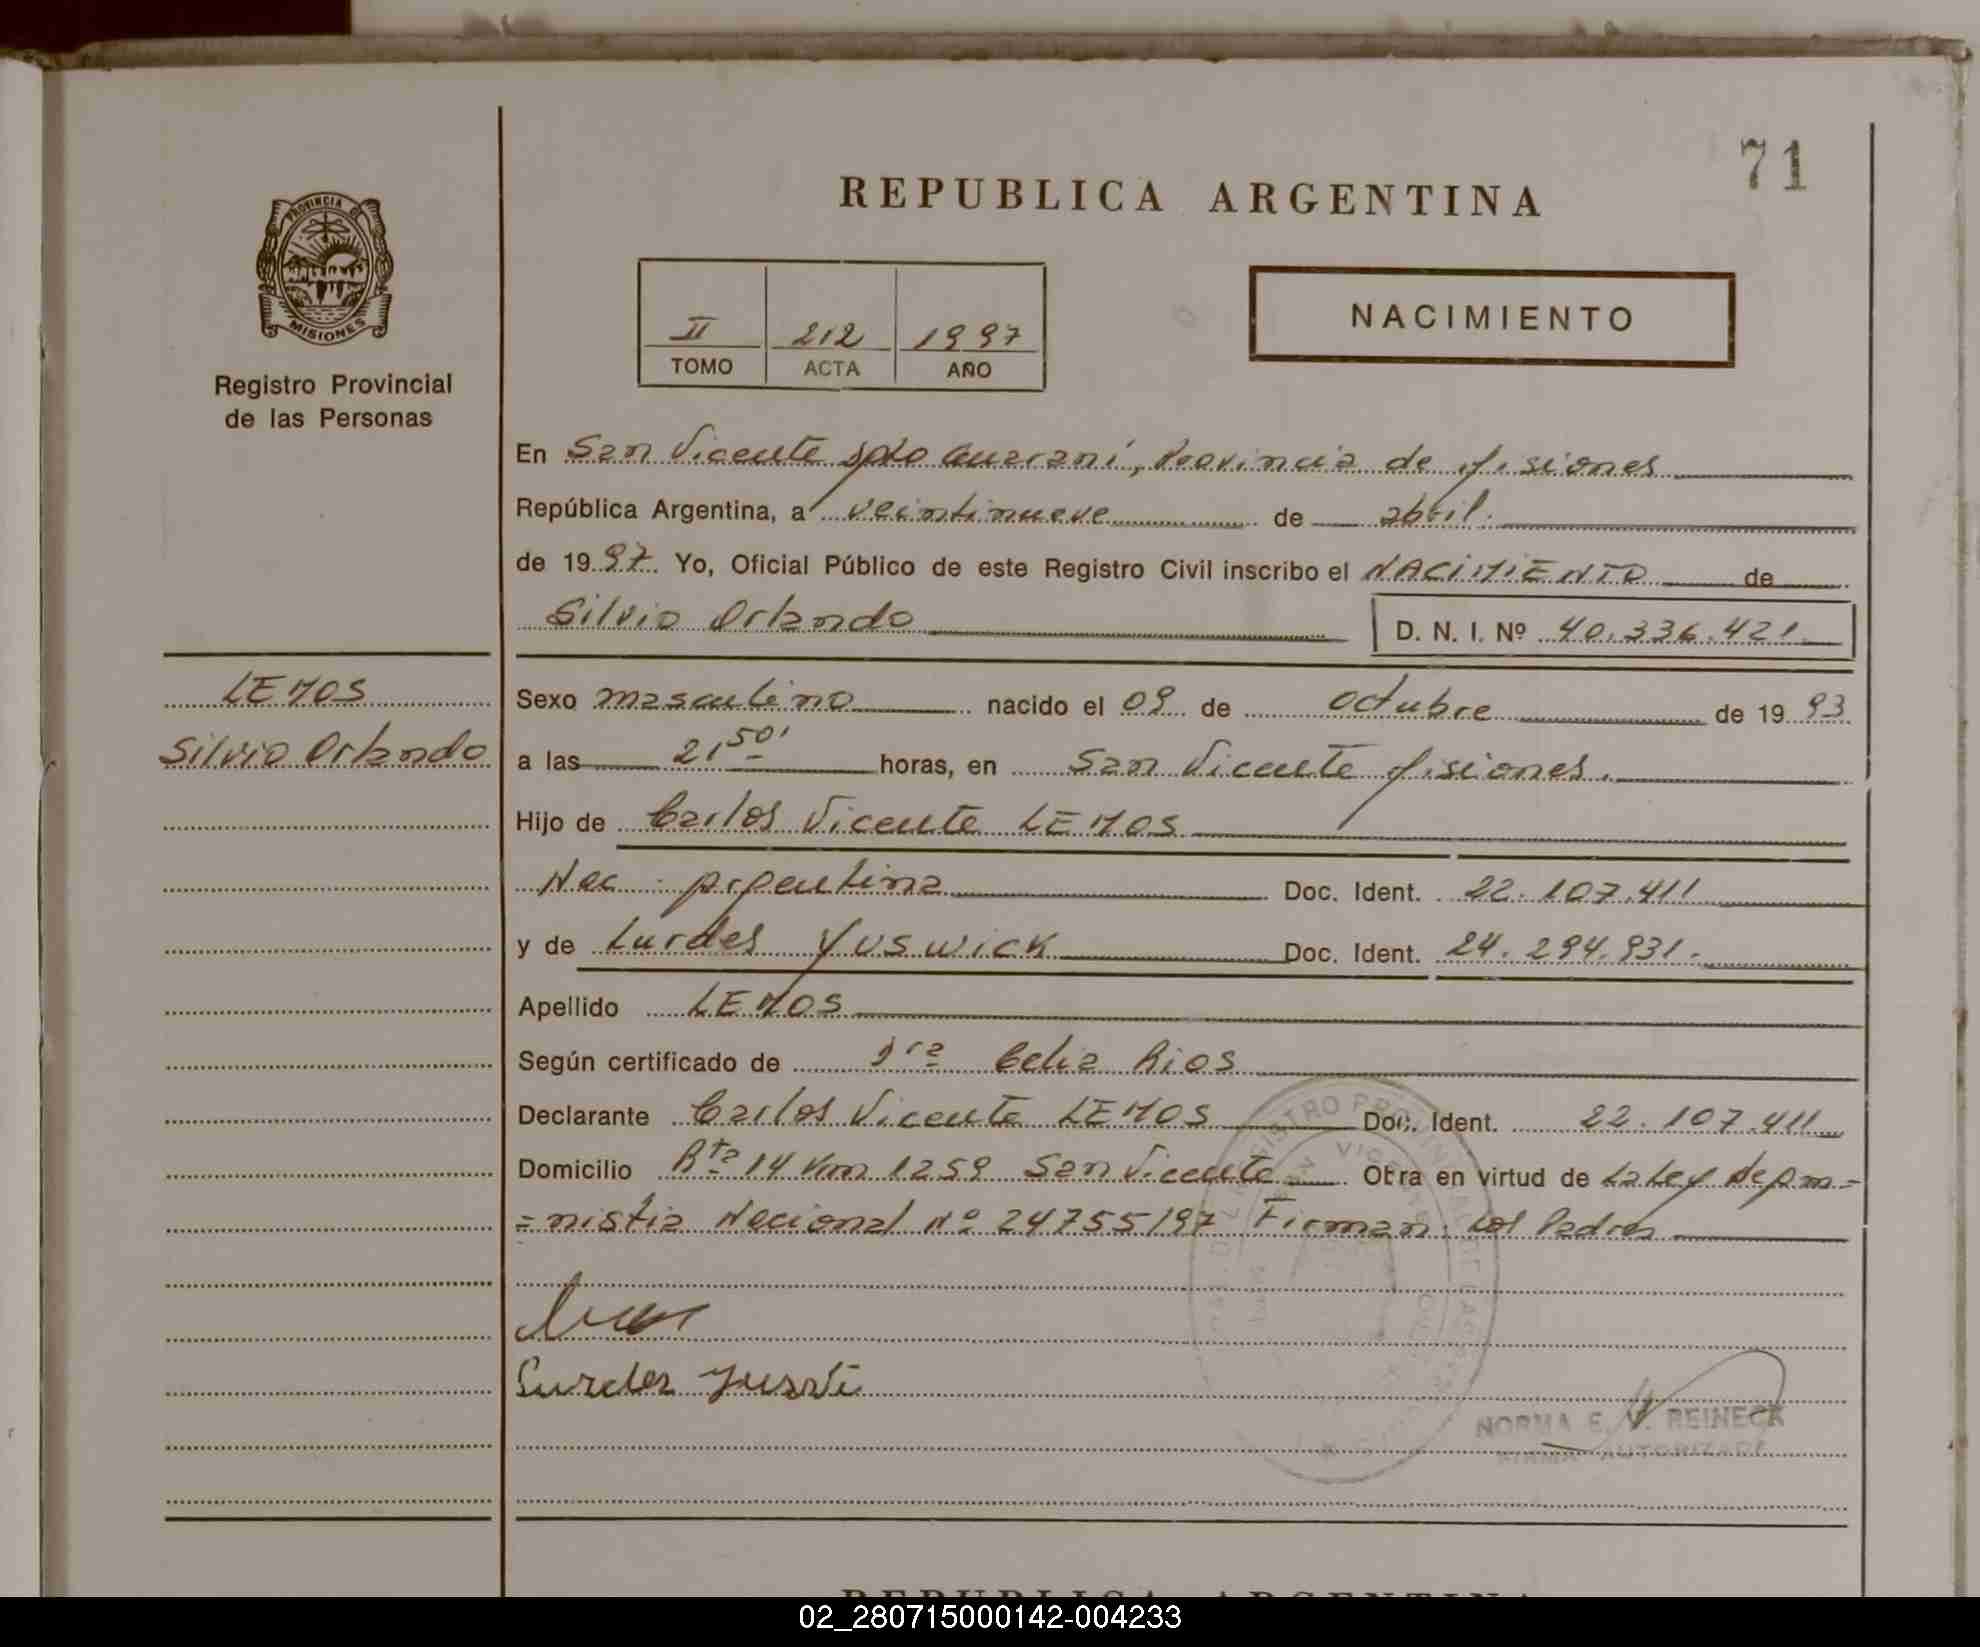 71
REPUBLICA ARGENTINA
PROVINCIA DE
MISIONES
Registro Provincial
de las Personas
II 212 1997
TOMO ACTA AÑO
NACIMIENTO
En San Vicente Dpto Guaraní, Provincia de Misiones
República Argentina, a veintinueve de abril
de 1997 Yo, Oficial Público de este Registro Civil inscribo el NACIMIENTO de
Silvio Orlando D. N. I. Nº 40.336.421
LEMOS
Silvio Orlando
Sexo masculino nacido el 09 de octubre de 1993
a las 21 50' horas, en San Vicente Misiones.
Hijo de Carlos Vicente LEMOS
Nac. Argentina Doc. Ident. 22.107.411
y de Lurdes YUSWICK Doc. Ident. 24.294.931.
Apellido LEMOS
Según certificado de Dra Celia Rios
Declarante Carlos Vicente LEMOS Doc. Ident. 22.107.411
Domicilio Rta 14 Km 1259 San Vicente Obra en virtud de La Ley de Am=
=nistia Nacional Nº 24755/97 Firman: Los Padres
Lurdes
NORMA E. V. REINECK
FIRMA AUTORIZADA
REPUBLICA ARGENTINA
02_280715000142-004233